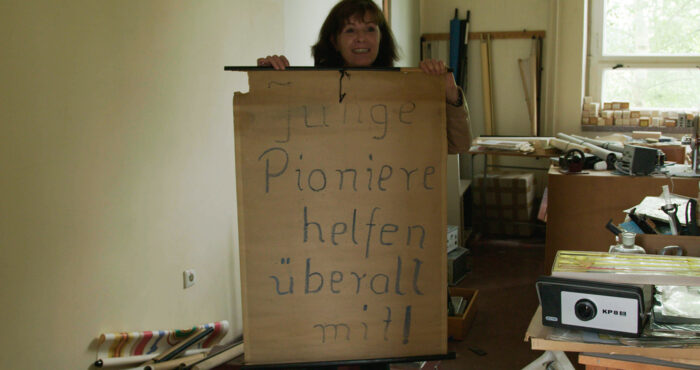 Junge
Pioniere
helfen
überall
mit!
KP 8